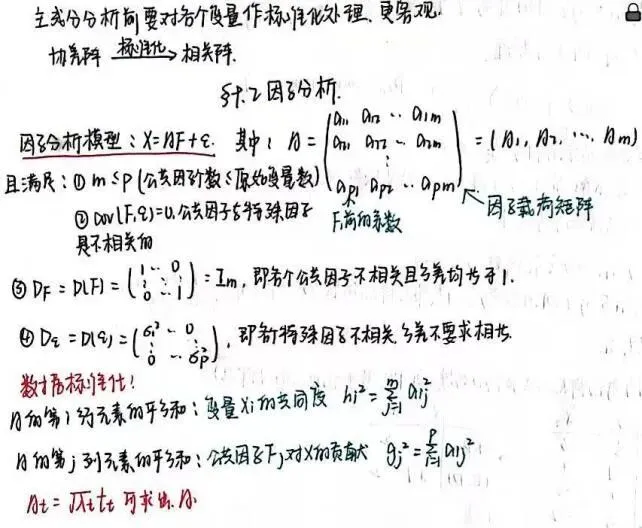 主成分分析前要对各个变量作标准化处理、更客观.
协差阵 标准化→ 相关阵.
§7.2 因子分析.
因子分析模型:X=AF+ε. 其中:A=(a11 a12 ‥ a1m
a21 a22 ‥ a2m
⋮
ap1 ap2 ‥ apm) = (A1, A2, ⋯ Am)
且满足:① m≤p (公共因子数≤原始变量数)
F1前的系数
因子载荷矩阵
② cov(F,ε)=0, 公共因子与特殊因子
是不相关的
③ DF = D(F) = (1 ‥ 0
0 ‥ 1) = Im, 即各个公共因子不相关且方差均为于1.
④ Dε = D(ε) = (σ1² ‥ 0
0 ‥ σp²), 即各特殊因子不相关, 方差不要求相等.
数据标准化!
A的第i行元素的平方和:变量Xi的共同度 hi² = Σ(j=1,m) aij²
A的第j列元素的平方和:公共因子Fj对X的贡献 gj² = Σ(i=1,p) aij²
At = √λt tt 可求出A.